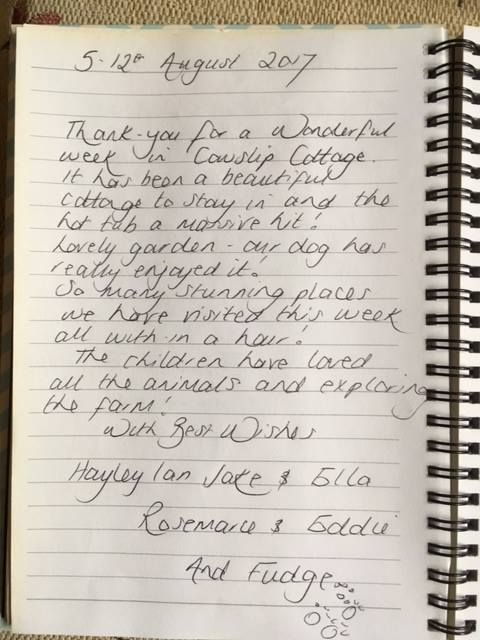 5-12th August 2017
Thank-you for a wonderful
week in Cowslip Cottage.
It has been a beautiful
cottage to stay in and the
hot tub a massive hit!
Lovely garden - our dog has
really enjoyed it!
So many stunning places
we have visited this week
all with-in a hour!
The children have loved
all the animals and exploring
the farm!
With Best Wishes
Hayley Ian Jake & Ella
Rosemarie & Eddie
And Fudge